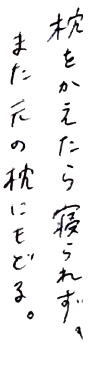 枕をかえたら寝られず、
また元の枕にもどる。